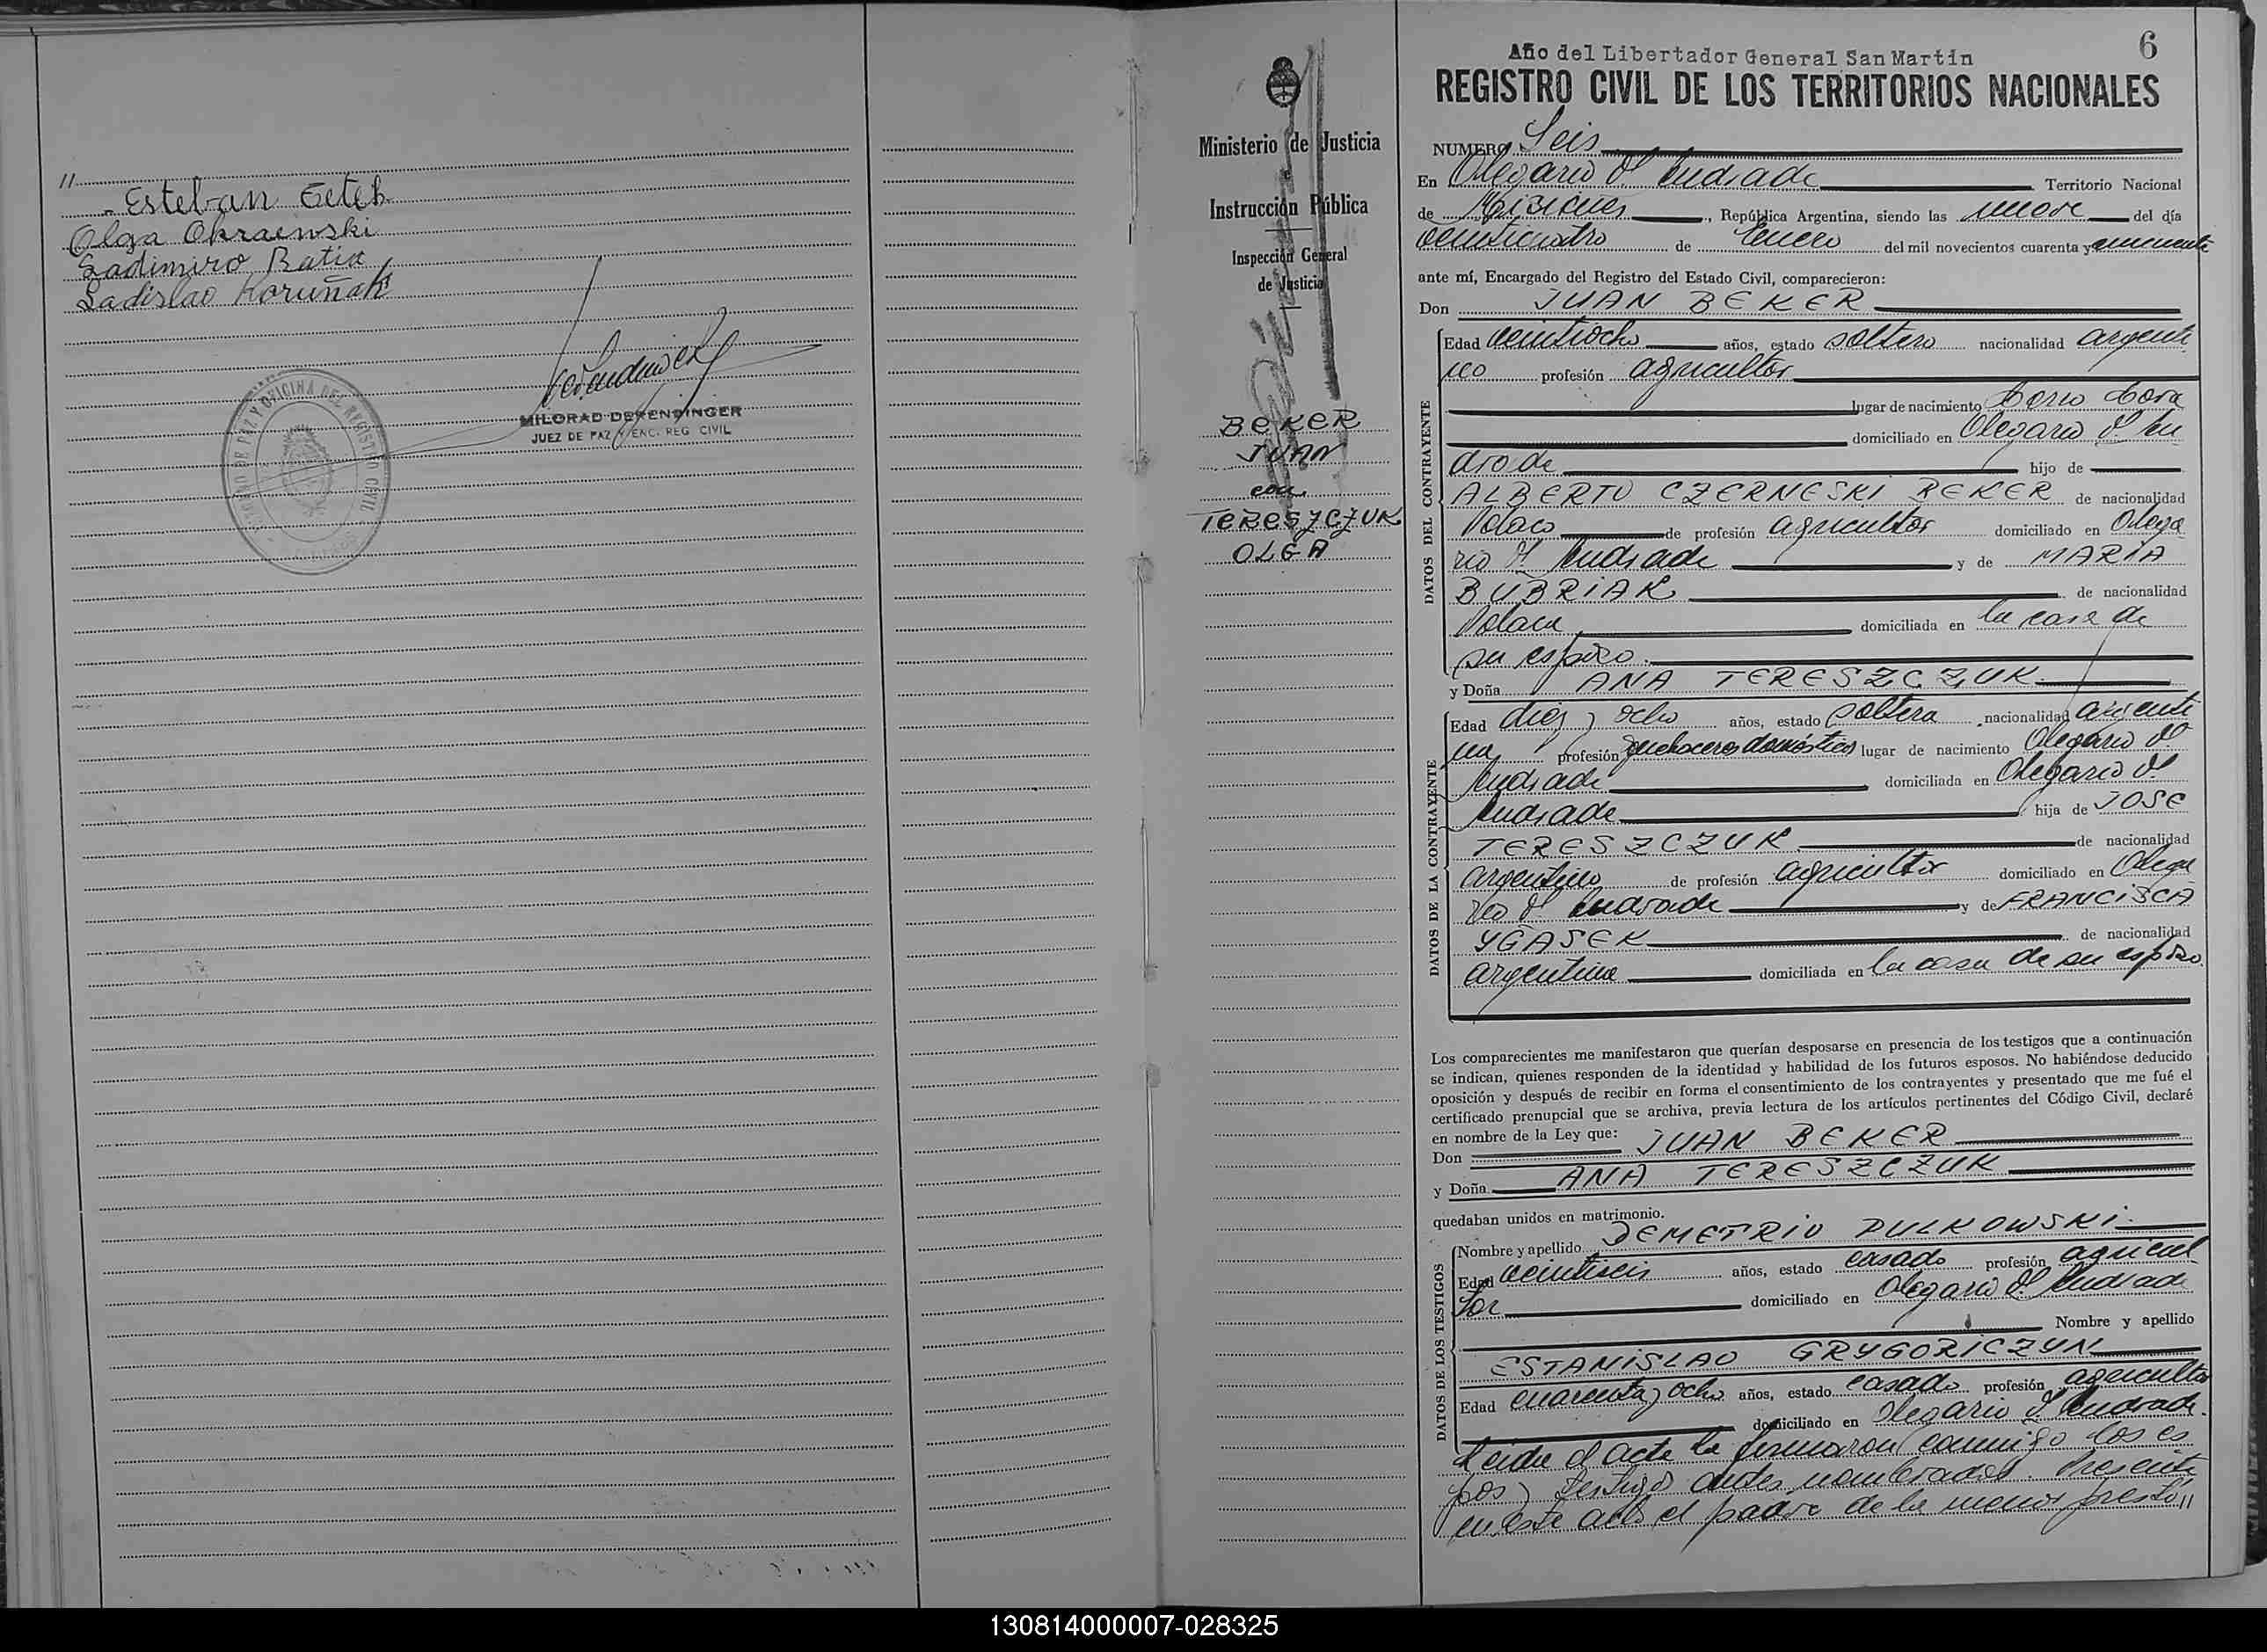 11
- Esteban Getek
Olga Okraiński
Ladimiro Batix
Ladislao Koruñak
MILORAD DERENDINGER
JUEZ DE PAZ Y ENC. REG. CIVIL
JUZGADO DE PAZ Y OFICINA DEL REGISTRO CIVIL
Ministerio de Justicia
e
Instrucción Pública
Inspección General
de Justicia
BEKER
JUAN
con
TERESZCZUK
OLGA
6
Año del Libertador General San Martín
REGISTRO CIVIL DE LOS TERRITORIOS NACIONALES
NUMERO Seis
En Olegario V. Andrade Territorio Nacional
de Misiones, República Argentina, siendo las nueve del día
veinticuatro de Enero del mil novecientos cuarenta y cincuenta
ante mí, Encargado del Registro del Estado Civil, comparecieron:
Don JUAN BEKER
DATOS DEL CONTRAYENTE
Edad veintiocho años, estado soltero nacionalidad argenti
no profesión agricultor
lugar de nacimiento Cerro Cora
domiciliado en Olegario V. An
drade hijo de
ALBERTO CZERNESKI BEKER de nacionalidad
Polaco de profesión agricultor domiciliado en Olega
rio V. Andrade y de MARIA
BUBRIAK de nacionalidad
Polaca domiciliada en la casa de
su esposo.
y Doña ANA TERESZCZUK
DATOS DE LA CONTRAYENTE
Edad diez y ocho años, estado soltera nacionalidad argenti
na profesión quehaceres domésticos lugar de nacimiento Olegario V.
Andrade domiciliada en Olegario V.
Andrade hija de JOSE
TERESZCZUK de nacionalidad
argentino de profesión agricultor domiciliado en Olega
rio V. Andrade y de FRANCISCA
YGASEK de nacionalidad
argentina domiciliada en la casa de su esposo.
Los comparecientes me manifestaron que querían desposarse en presencia de los testigos que a continuación
se indican, quienes responden de la identidad y habilidad de los futuros esposos. No habiéndose deducido
oposición y después de recibir en forma el consentimiento de los contrayentes y presentado que me fué el
certificado prenupcial que se archiva, previa lectura de los artículos pertinentes del Código Civil, declaré
en nombre de la Ley que:
Don JUAN BEKER
y Doña ANA TERESZCZUK
quedaban unidos en matrimonio.
DATOS DE LOS TESTIGOS
Nombre y apellido DEMETRIO DULKOWSKI
Edad veintiseis años, estado casado profesión agricul
tor domiciliado en Olegario V. Andrade
Nombre y apellido
ESTANISLAO GRYGORICZYN
Edad cuarenta y ocho años, estado casado profesión agricultor
domiciliado en Olegario V. Andrade.
Leida el acta la firmaron conmigo los es
posos y testigos antes nombrados. Presente
en este acto el padre de la menor prestó 11
130814000007-028325